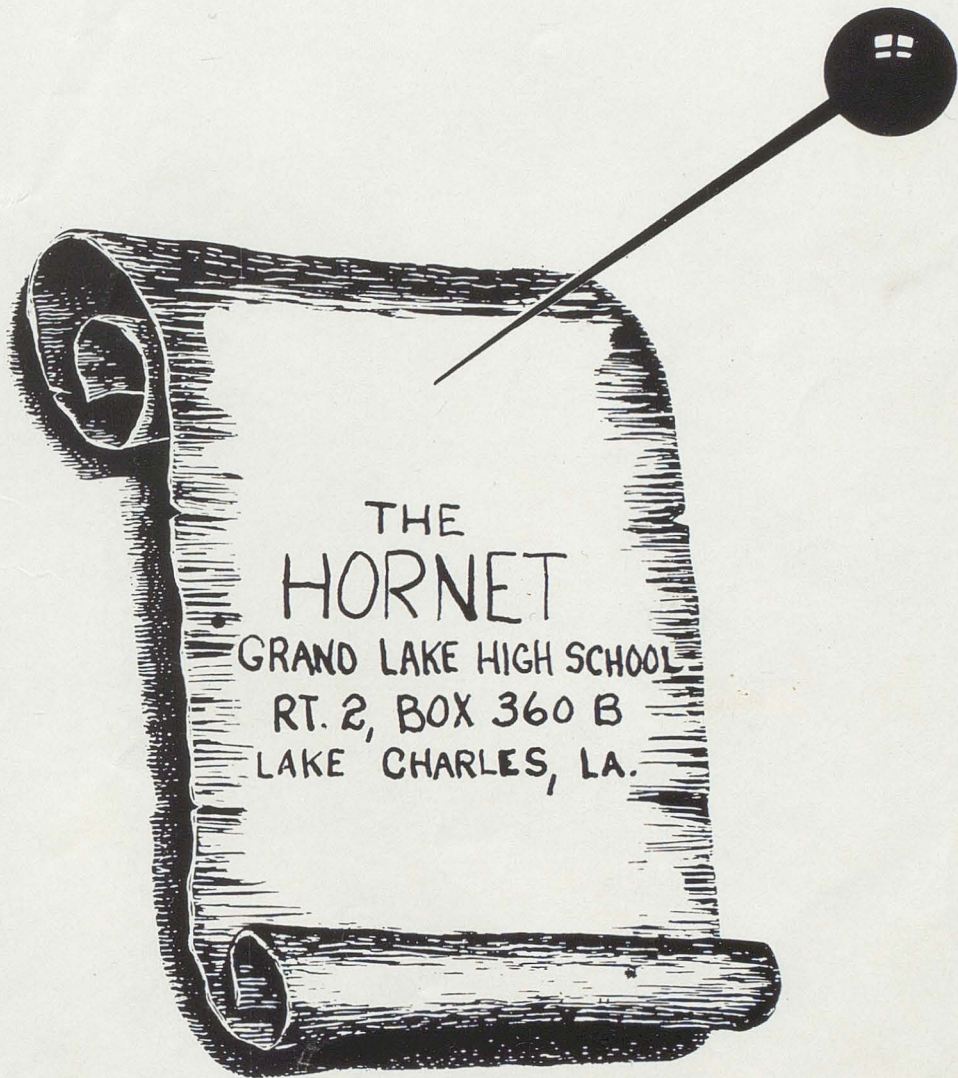 THE
HORNET
GRAND LAKE HIGH SCHOOL
RT. 2, BOX 360 B
LAKE CHARLES, LA.